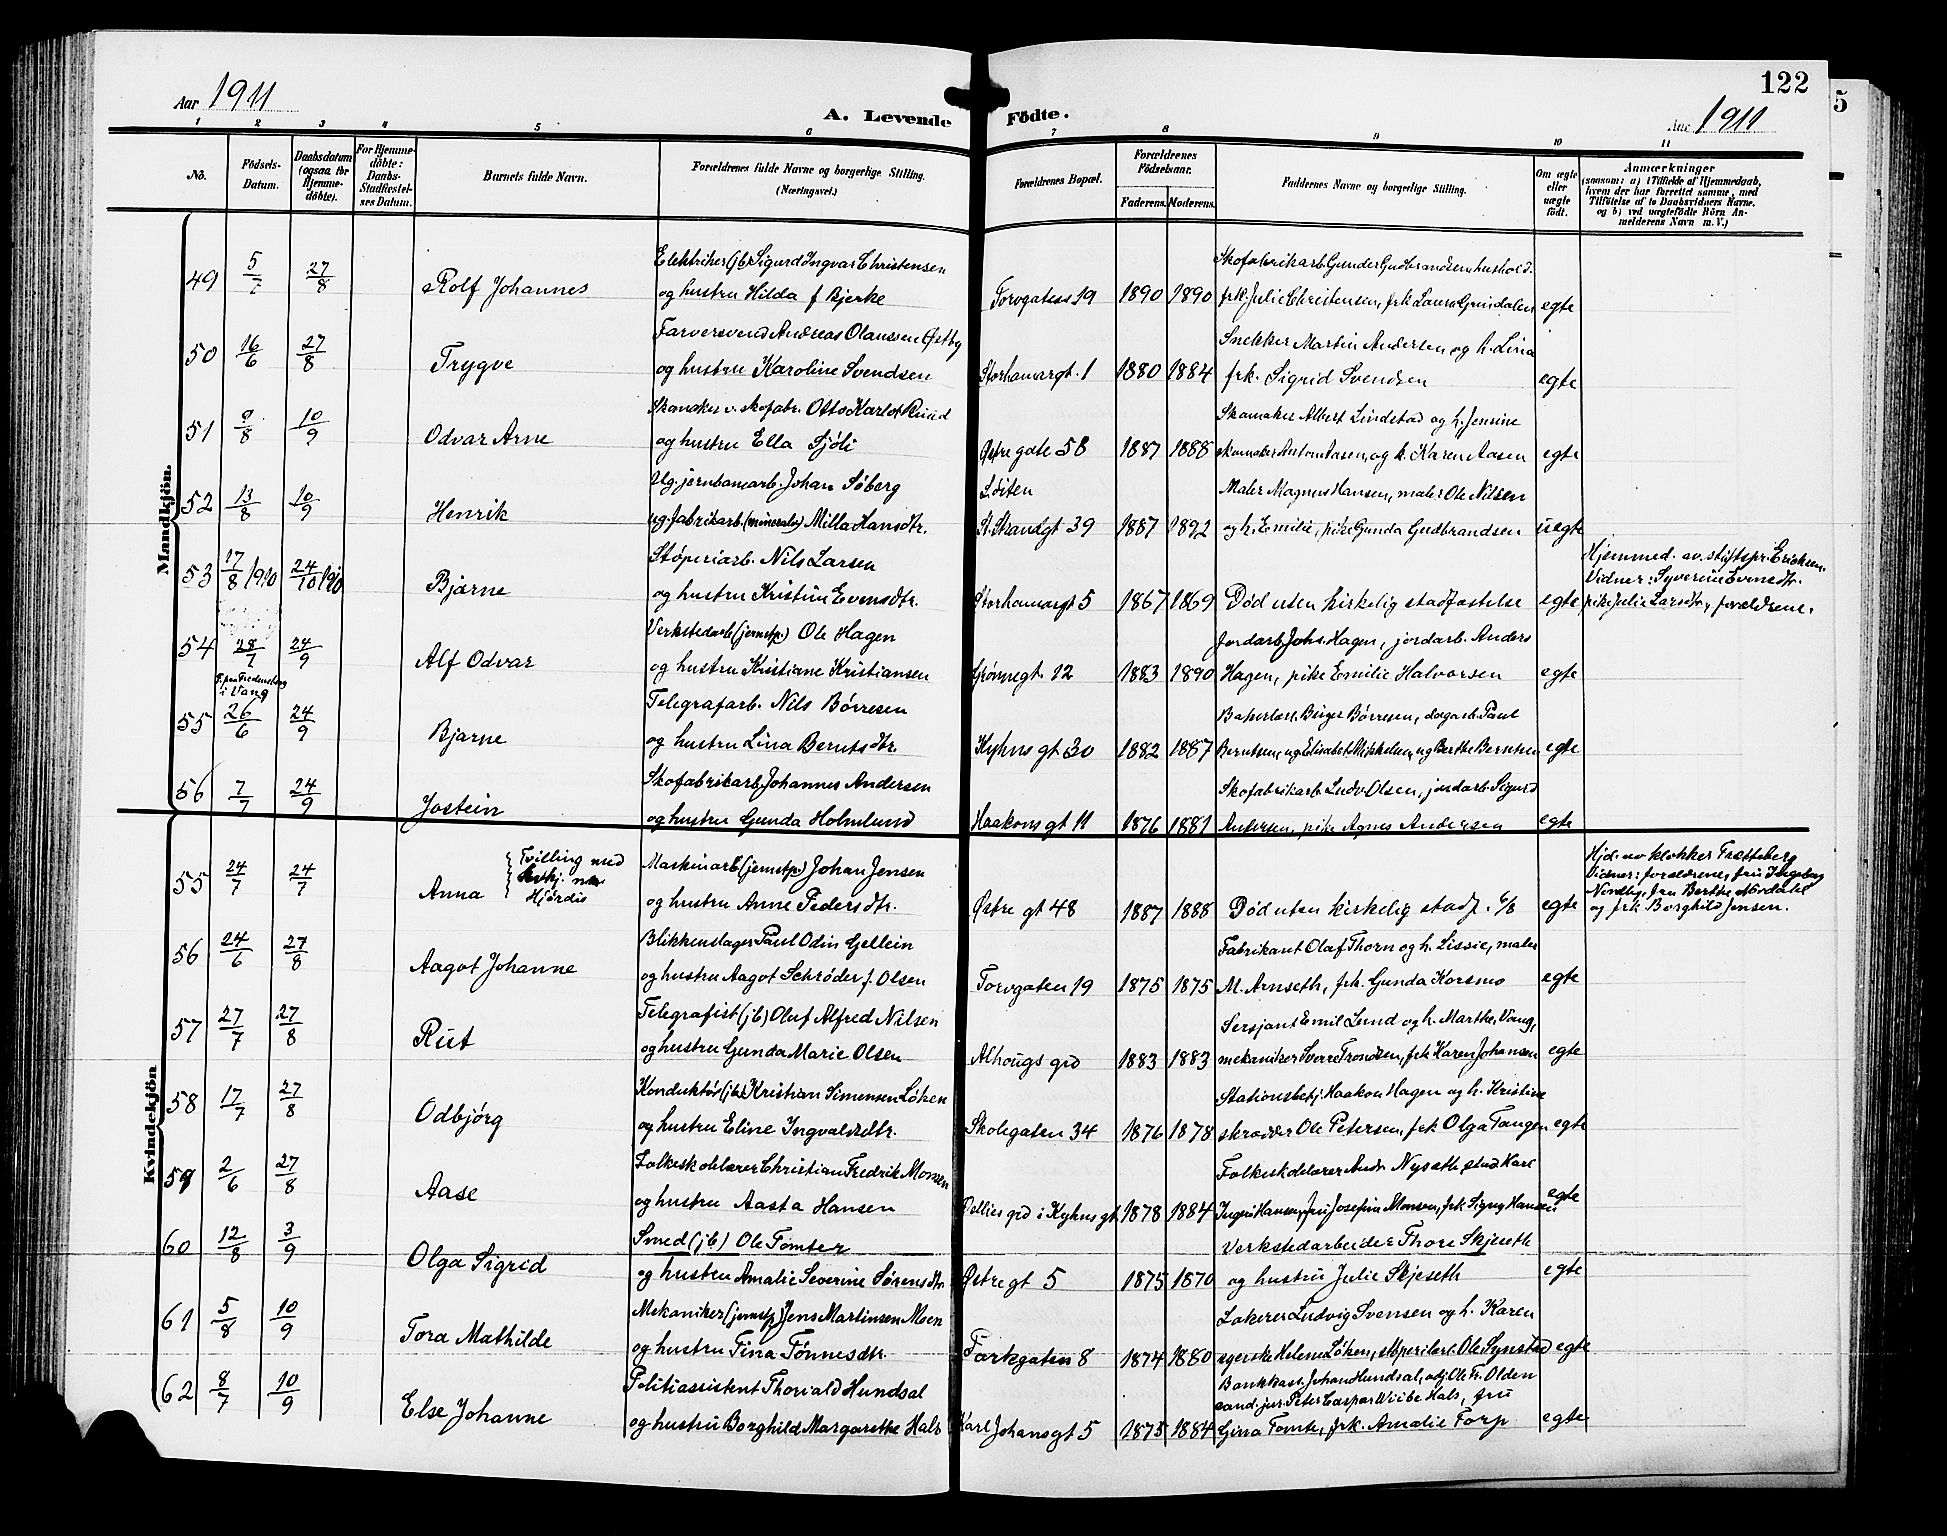 122
5
Aar 1911
A. Levende Födte.
Aar 1911
1 2 3 4 5 6 7 8 9 10 11
No.
Födsels-
Datum.
Daabsdatum
(ogsaa for
Hjemme-
döbte).
For Hjemme-
döbte:
Daabs-
Stadfæstel-
ses Datum.
Barnets fulde Navn.
Forældrenes fulde Navne og borgerlige Stilling.
(Næringsvei.)
Forældrenes Bopæl.
Forældrenes
Födselsaar.
Faderens. Moderens.
Faddernes Navne og borgerlige Stilling.
Om ægte
eller
uægte
födt.
Anmærkninger
(saasom: a) i Tilfælde af Hjemmedaab,
hvem der har forrettet samme, med
Tilföielse af to Daabsvidners Navne.
og b) ved uægtefödte Börn An-
melderens Navn m. V.)
Mandkjön.
Elektriker (jb) Sigurd Ingvar Christensen Skofabrikarb. Gunder Gudbrandsen hushold.
49 5/7 27/8 Rolf Johannes og hustru Hilda f Bjerke Torvgaten 19 1890 1890 frk. Julie Christensen, frk Laura Grindalen egte
Farversvend Andreas Olaussen Østby Snekker Martin Andersen og h. Lina
50 16/6 27/8 Trygve og hustru Karoline Svendsen Storhamargt. 1 1880 1884 frk. Sigrid Svendsen egte
Skomaker v. skofabr. Otto Karlot Ruud Skomaker Albert Lindstad og h. Jensine
51 9/8 10/9 Odvar Arne og hustru Ella Sjöli Østregate 58 1887 1888 skomaker Anton Aasen, og h. Karen Aasen egte
Ug. jernbanearb. Johan Söberg Löiten Maler Magnus Hansen, maler Ole Nilsen
52 13/8 10/9 Henrik ug. fabrikarb. (mineralv) Milla Hansdtr. St. Strandgt 39 1887 1892 og h. Emilie, pike Gunda Gudbrandsen uegte
Støperiarb. Nils Larsen Hjemmed. av stiftspr. Ericksen.
Vidner: Syverine Evensdtr.
53 17/8 1910 24/10 1910 Bjarne og hustru Kristine Evensdtr. Storhamargt 5 1867 1869 Död uten kirkelig stadfæstelse egte pike Julie Larsdtr, forældrene.
Verkstedarb (jernstp.) Ole Hagen Jordarb Johs. Hagen, jordarb. Anders
54 28/7 24/9 Alf Odvar og hustru Kristiane Kristiansen Grönnegt. 12 1883 1890 Hagen, pike Emilie Halvorsen egte
F. paa Fredensborg
i Vang
Telegrafarb. Nils Börresen Birger Börresen, dagarb. Paul
55 26/6 24/9 Bjarne og hustru Lina Berntsdtr. Kyhns gt 30 1882 1887 Berntsen, ug Elisabet Mikkelsen, ug Berthe Berntsen egte
Skofabrikarb. Johannes Andersen Skofabrikarb. Ludv. Olsen, jordarb. Sigurd
56 7/7 24/9 Jostein og hustru Gunda Holmlund Haakons gt 11 1876 1881 Andersen, pike Agnes Andersen egte
Kvindekjön
Tvilling med
Hjördis
Maskinarb (jernstp) Johan Jensen Hjd. av klokker Fretteberg
Vidner: forældrene, fru Ingeborg
55 24/7 24/7 Anna og hustru Anne Pedersdtr. Østre gt 48 1887 1888 Död uten kirkelig stadf. 6/8 egte
Nordby, fru Berthe
og frk Borghild Jensen.
Blikkenslager Paul Odin Gellein Fabrikant Olaf Thorn og h. Lissie, maler
56 24/6 27/8 Aagot Johanne og hustru Aagot Schröder f. Olsen Torvgaten 19 1875 1875 M. Arnseth, frk. Gunda Korsmo egte
Telegrafist (jb) Oluf Alfred Nilsen Sersjant Emil Lund og h. Marthe, Vang,
57 27/7 27/8 Rut og hustru Gunda Marie Olsen Alhougs grd 1883 1883 mekaniker Sverre Trondsen, frk Karen Johansen egte
Konduktör (jb) Kristian Simensen Löken Stationsbetj. Haakon Hagen og h. Kristine
58 17/7 27/8 Odbjörg og hustru Eline Ingvaldsdtr. Skolegaten 34 1876 1878 skrædder Ole Petersen, frk Olga Tangen egte
Folkeskolelærer Christian Fredrik Monsen Folkeskolelærer Andr. Nyseth, stud Karl
59 2/6 27/8 Aase og hustru Aasta Hansen Dellies grd i Kyhns gt 1878 1884 Ingv. Hansen, fru Josefine Monsen, frk. Signy Hansen egte
Smed (jb) Ole Tomter Verkstedarbeider Thore Skjeseth
60 12/8 3/9 Olga Sigrid og hustru Amalie Severine Sörensdtr. Østre gt 5 1875 1870 og hustru Julie Skjeseth egte
Mekaniker (jernstp) Jens Martinsen Moen Lakerer Ludvig Svensen og h. Karen
61 5/8 10/9 Tora Mathilde og hustru Tina Tönnesdtr. Torkgaten 8 1874 1880 syerske Helene Löken, støperiarb. Ole Synstad egte
Politiassistent Thorvald Hundsal Bankkass. Johan Hundsal, adj. Ole Tr. Olden
cand. jur. Peter Caspar Wiibe Hals, fru
62 8/7 10/9 Else Johanne og hustru Borghild Margarethe Hals Karl Johans gt 5 1873 1884 Gina Tomte, frk. Amalie Torp egte